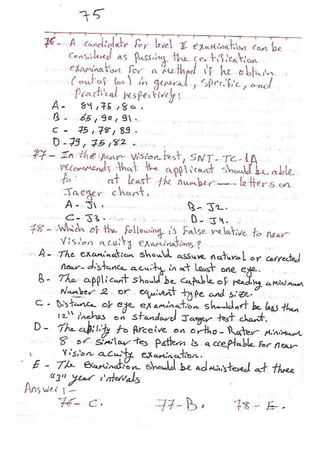 75
76- A candidate for level I examination can be
considered as passing the certification
examination for a method if he obtain
(out of 100) in general, specific, and
practical respectively:
A- 84,75,80.
B- 65,90,91.
C- 75,78,89.
D-79,75,82.
77- In the near vision test, SNT-TC-1A
recommends that the applicant should be able
to: at least the number — letters on
Jaeger chart.
A- J1. B- J2.
C- J3. D- J4.
78- Which of the following is false relative to near
vision acuity examinations?
A- The examination should assure natural or corrected
near-distance acuity in at least one eye.
B- The applicant should be capable of reading a minimum
Number 2 or equivent type and size.
C- Distance of eye examination shouldn't be less than
12" inches on standard Jaeger test chart.
D- The ability to Perceive on ortho-Rater Minimum
8 or similar tes pattern is acceptable for near
vision acuity examination.
E- The Examination should be administered at three
"3" year intervals
Answer:-
76- C. 77-B. 78-E.